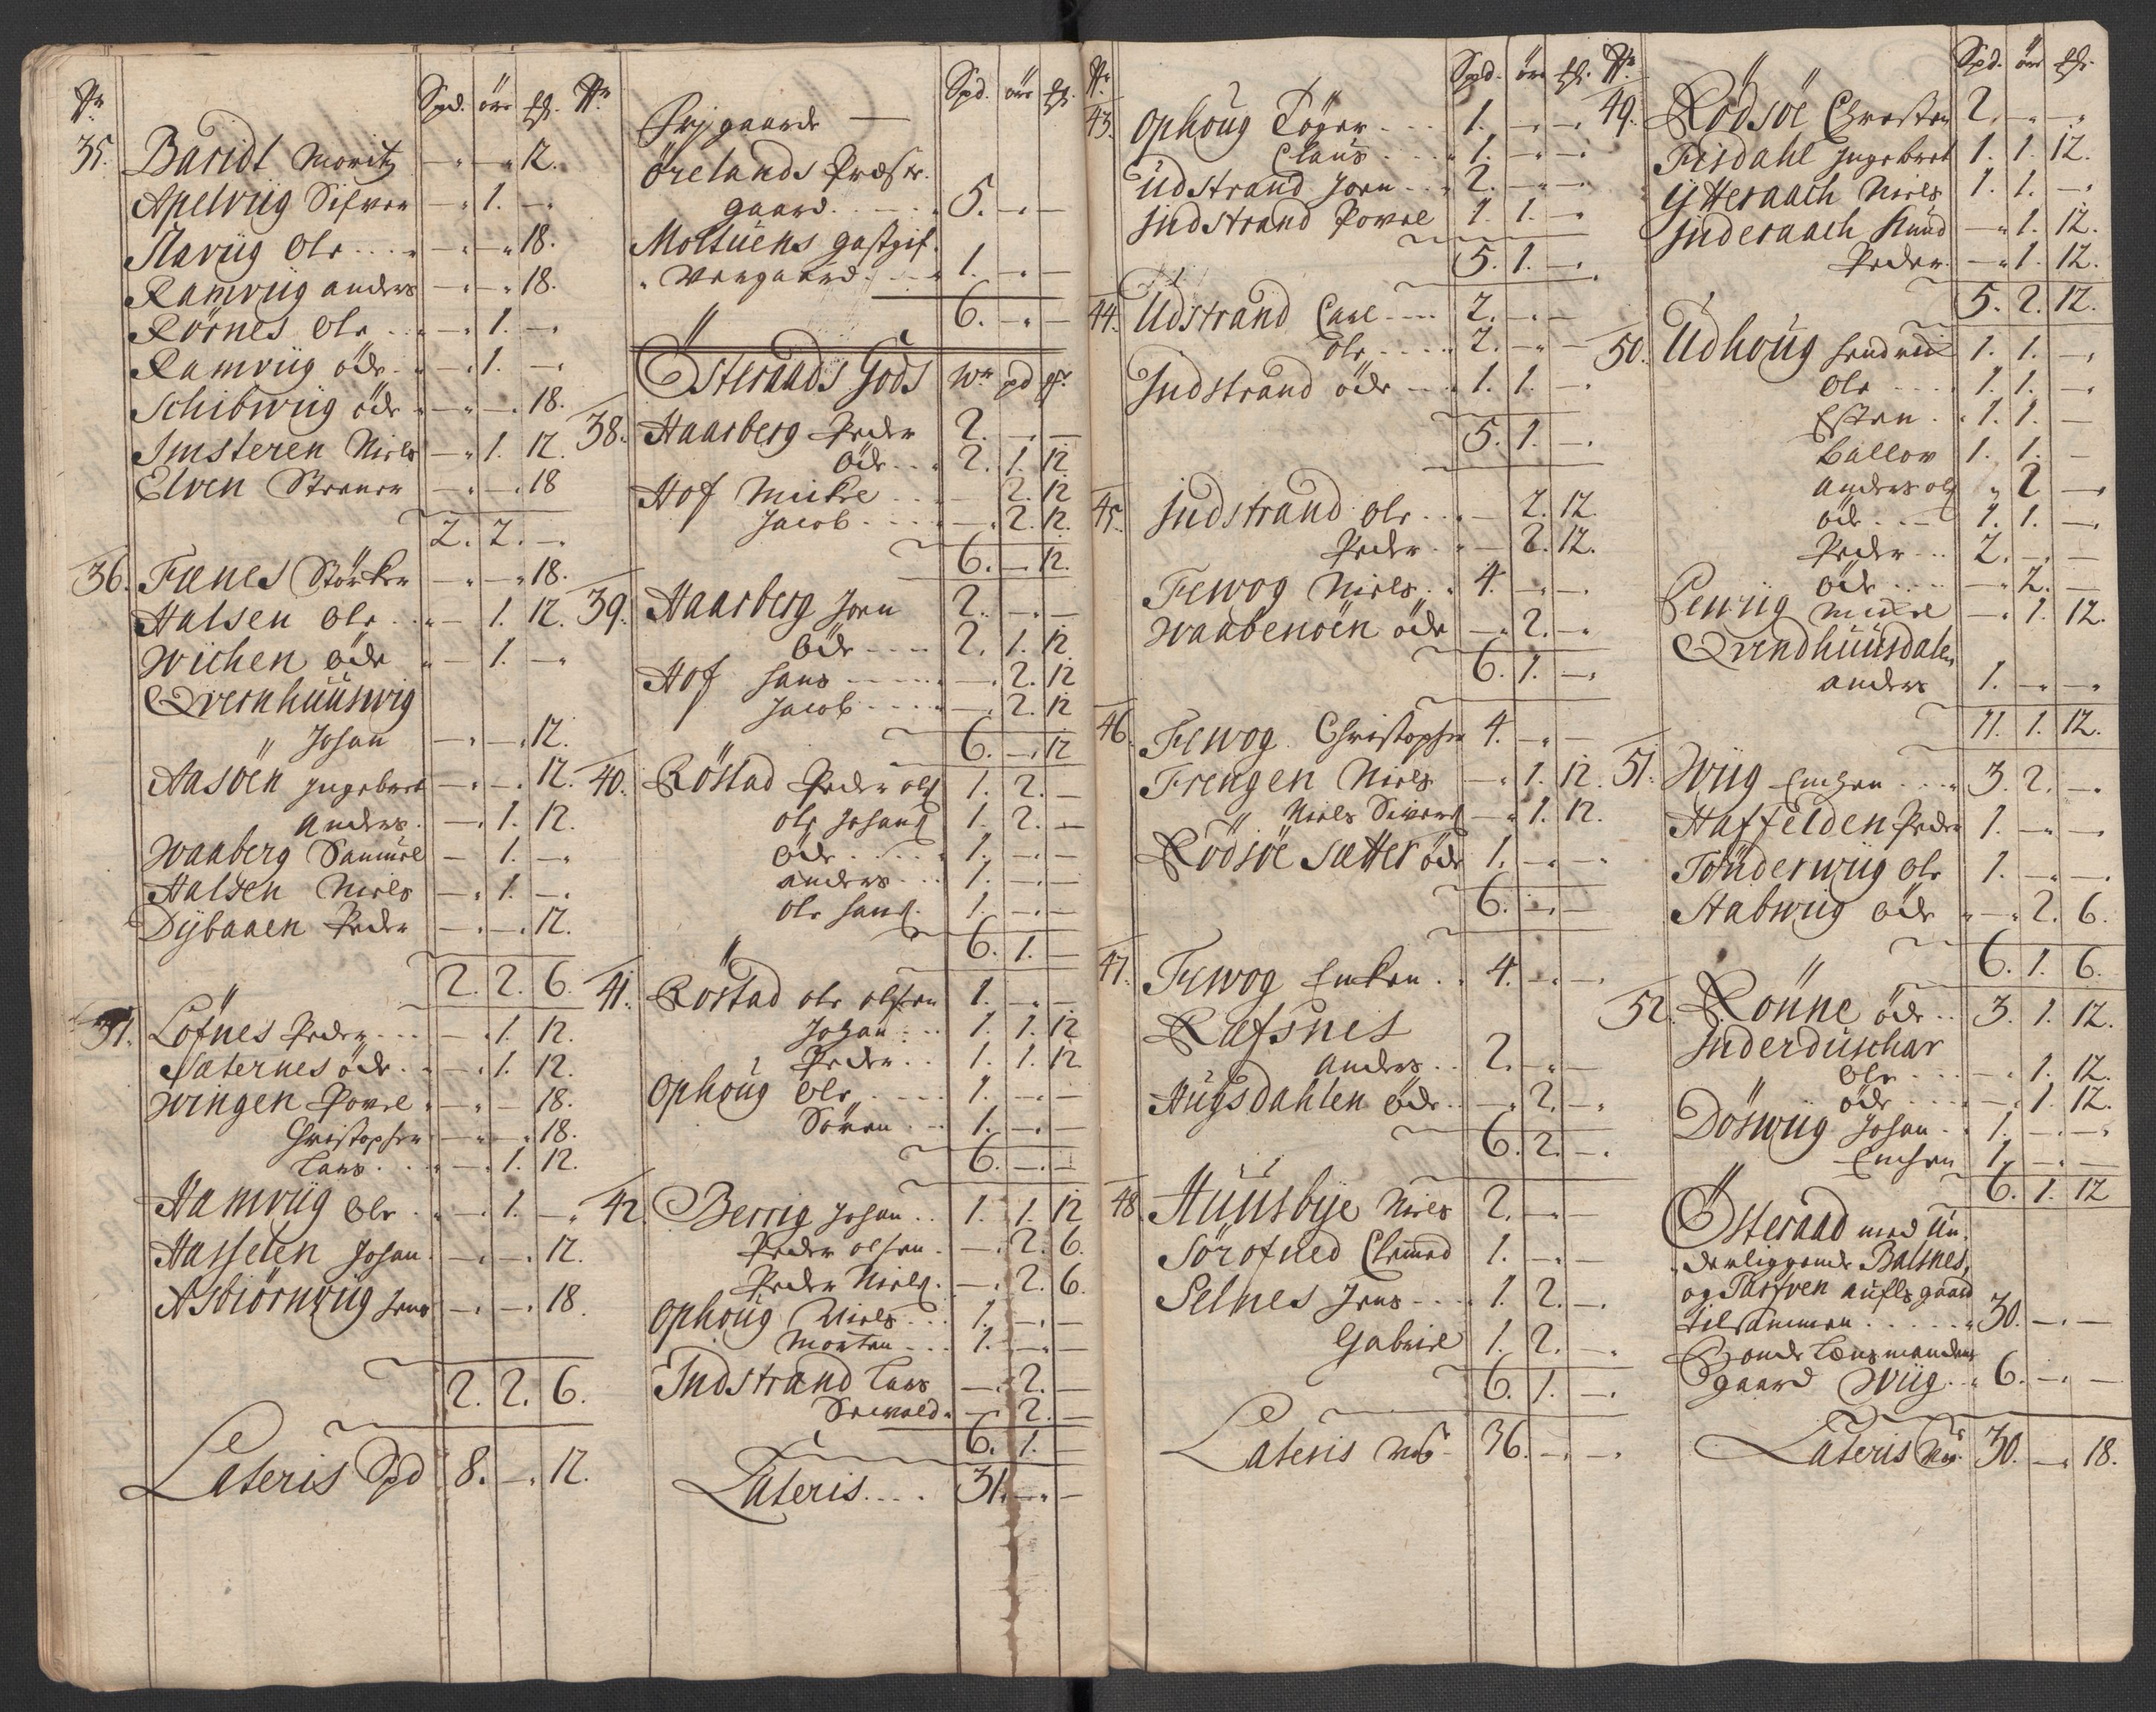 Nr Spd. öre
35. Baridt Moritz — — 12.
Apelviig Sifver — 1. —
Slaviig Ole — — 18.
Ramviig anders — — 18.
Rörnes Ole — 1. —
Ramviig öde — 1. —
Schibwiig öde — — 18.
Imsteren Niels — 1. 12.
Elven — — 18
2. 2. —
36. Fænes Störker — — 18.
Halsen Ole — 1. 12.
Wichen öde — 1. —
Qvernhuuswig
Johan — — 12.
Aasöen Ingebret — — 12.
Anders — 1. 12.
Waaberg Samuel — 1. —
Halsen Niels — 1. —
Dÿbaaen Peder — — 12.
2. 2. 6.
37. Löfnes Peder — 1. 12.
Saternes öde — 1. 12.
Wingen Povel — — 18.
Christopher — — 18.
Lars — 1. 12.
Hamviig Ole — 1. —
Hasselen Johan — — 12.
Asbiörnviig Jens — — 18
2. 2. 6.
Lateris Spd 8. — 12.
Nr Spd. öre
Frijgaarde —
Örelands Præste
gaard 5. — —
Moltuens gastgif
wergaard 1. — —
6. — —
Österaads Gods Wr pd
38. Haarberg Peder 2. — —
Öde 2. 1. 12
Hof Mickel — 2. 12
Jacob — 2. 12.
6. — 12.
39. Haarberg Joen 2. — —
Öde 2. 1. 12
Hof Hans — 2. 12
Jacob — 2. 12
6. — 12
40. Röstad Peder ols 1. 2. —
Ole Johans 1. 2. —
Öde 1. — —
anders 1. — —
Ole Hans. 1. — —
6. 1. —
41. Röstad Ole olsen 1. — —
Johan 1. 1. 12
Peder 1. 1. 12
Ophoug Ole 1. — —
Sören 1. — —
6. — —
42. Berrig Johan 1. 1. 12
Peder olsen — 2. 6.
Peder Niels. — 2. 6.
Ophoug Niels 1. — —
Morten 1. — —
Indstrand Lars — 2. —
Sewald — 2. —
6. 1. —
Lateris 31. — —
Nr Spd. öre
43. Ophoug Töger 1. — —
Claus 1. — —
Udstrand Joen 2. — —
Indstrand Povel 1. 1. —
5. 1. —
44. Udstrand Carl 2. — —
Ole 2. — —
Indstrand öde 1. 1. —
5. 1. —
45. Indstrand Ole — 2. 12.
Peder — 2. 12.
Fewog Niels 4. — —
Waabenöen öde — 2. —
6. 1. —
46. Fewog Christopher 4. — —
Frengen Niels — 1. 12
Niels Sivers — 1. 12.
Rödsöe sætter öde 1. — —
6. — —
47. Fewog Encken 4. — —
Ræfsnes
anders 2. — —
Hugsdahlen öde — 2. —
6. 2. —
48. Huusbye Niels 2. — —
Sörofned Clemed 1. — —
Selnes Jens 1. 2. —
Gabriel 1. 2. —
6. 1. —
Lateris Wog 36. — —
Nr Spd. öre
49. Rödsöe Christen 2. — —
Fisdahl Ingebret 1. 1. 12.
Ytteraaeh Niels 1. 1. —
Inderaach Knud — 1. 12.
Peder — 1. 12.
5. 2. 12.
50. Udhoug Hendrich 1. 1. —
Ole 1. 1. —
Esten 1. 1. —
Ballow 1. 1. —
anders ols — 2 —
öde 1. 1. —
Peder 2. — —
öde — 2. —
Lewiig Mickel — 1. 12.
Qvendhuusdalen
anders 1. — —
11. 1. 12.
51. Wiig Enchen 3. 2. —
Haffelden Peder 1. — —
Tönderwiig Ole 1. — —
Stabwiig öde — 2. 6.
6. 1. 6.
52. Rönne öde 3. 1. 12.
Inderduschar
Ole — 1. 12.
öde — 1. 12.
Döswiig Johan 1. — —
Enchen 1. — —
6. 1. 12
Österaad med Un
derliggende Balsnes,
og Tarfven aufls gaard
tilsammen 30. — —
Bonde Lensmandens
gaard Wiig 6. — —
Lateris Wog. 30. — 18.